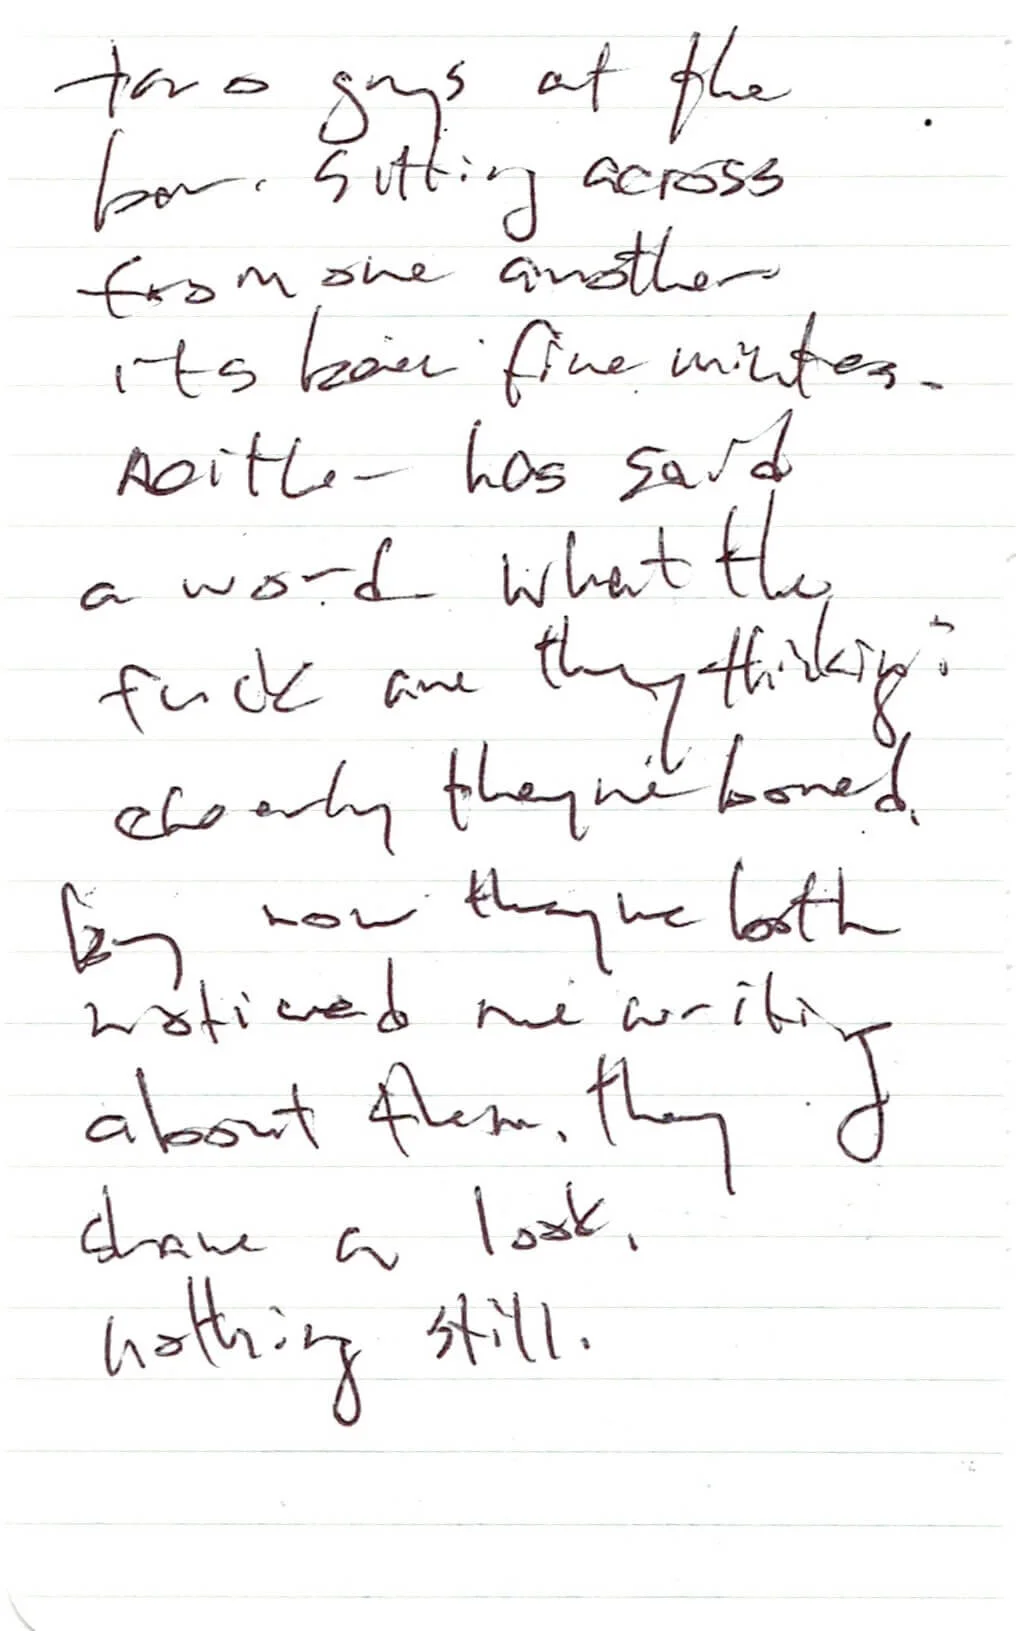 two guys at the
bar. sitting across
from one another
its been five minutes.
neither has said
a word what the
fuck are they thinking?
clearly they're bored.
by now they've both
noticed me writing
about them. they
share a look.
nothing still.